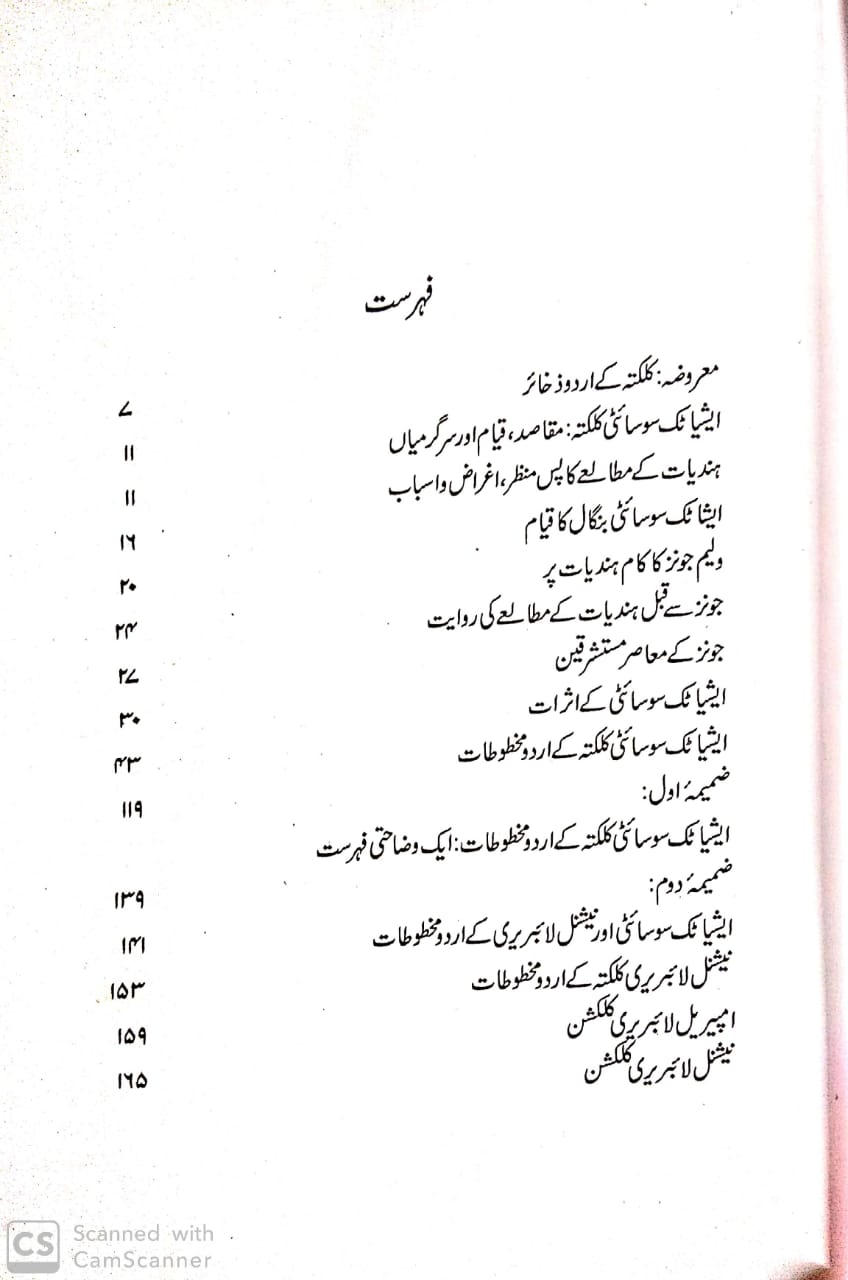 فہرست
معروضہ: کلکتہ کے اردو ذخائر ۷
ایشیاٹک سوسائٹی کلکتہ: مقاصد، قیام اور سرگرمیاں ۱۱
ہندیات کے مطالعے کا پس منظر، اغراض و اسباب ۱۱
ایشاٹک سوسائٹی بنگال کا قیام ۱۶
ولیم جونز کا کام ہندیات پر ۲۰
جونز سے قبل ہندیات کے مطالعے کی روایت ۲۴
جونز کے معاصر مستشرقین ۲۷
ایشیاٹک سوسائٹی کے اثرات ۳۰
ایشیاٹک سوسائٹی کلکتہ کے اردو مخطوطات ۴۳
ضمیمۂ اول: ۱۱۹
ایشیاٹک سوسائٹی کلکتہ کے اردو مخطوطات: ایک وضاحتی فہرست
ضمیمۂ دوم: ۱۳۹
ایشیاٹک سوسائٹی اور نیشنل لائبریری کے اردو مخطوطات ۱۴۱
نیشنل لائبریری کلکتہ کے اردو مخطوطات ۱۵۳
امپیریل لائبریری کلکشن ۱۵۹
نیشنل لائبریری کلکشن ۱۶۵
CS Scanned with
CamScanner